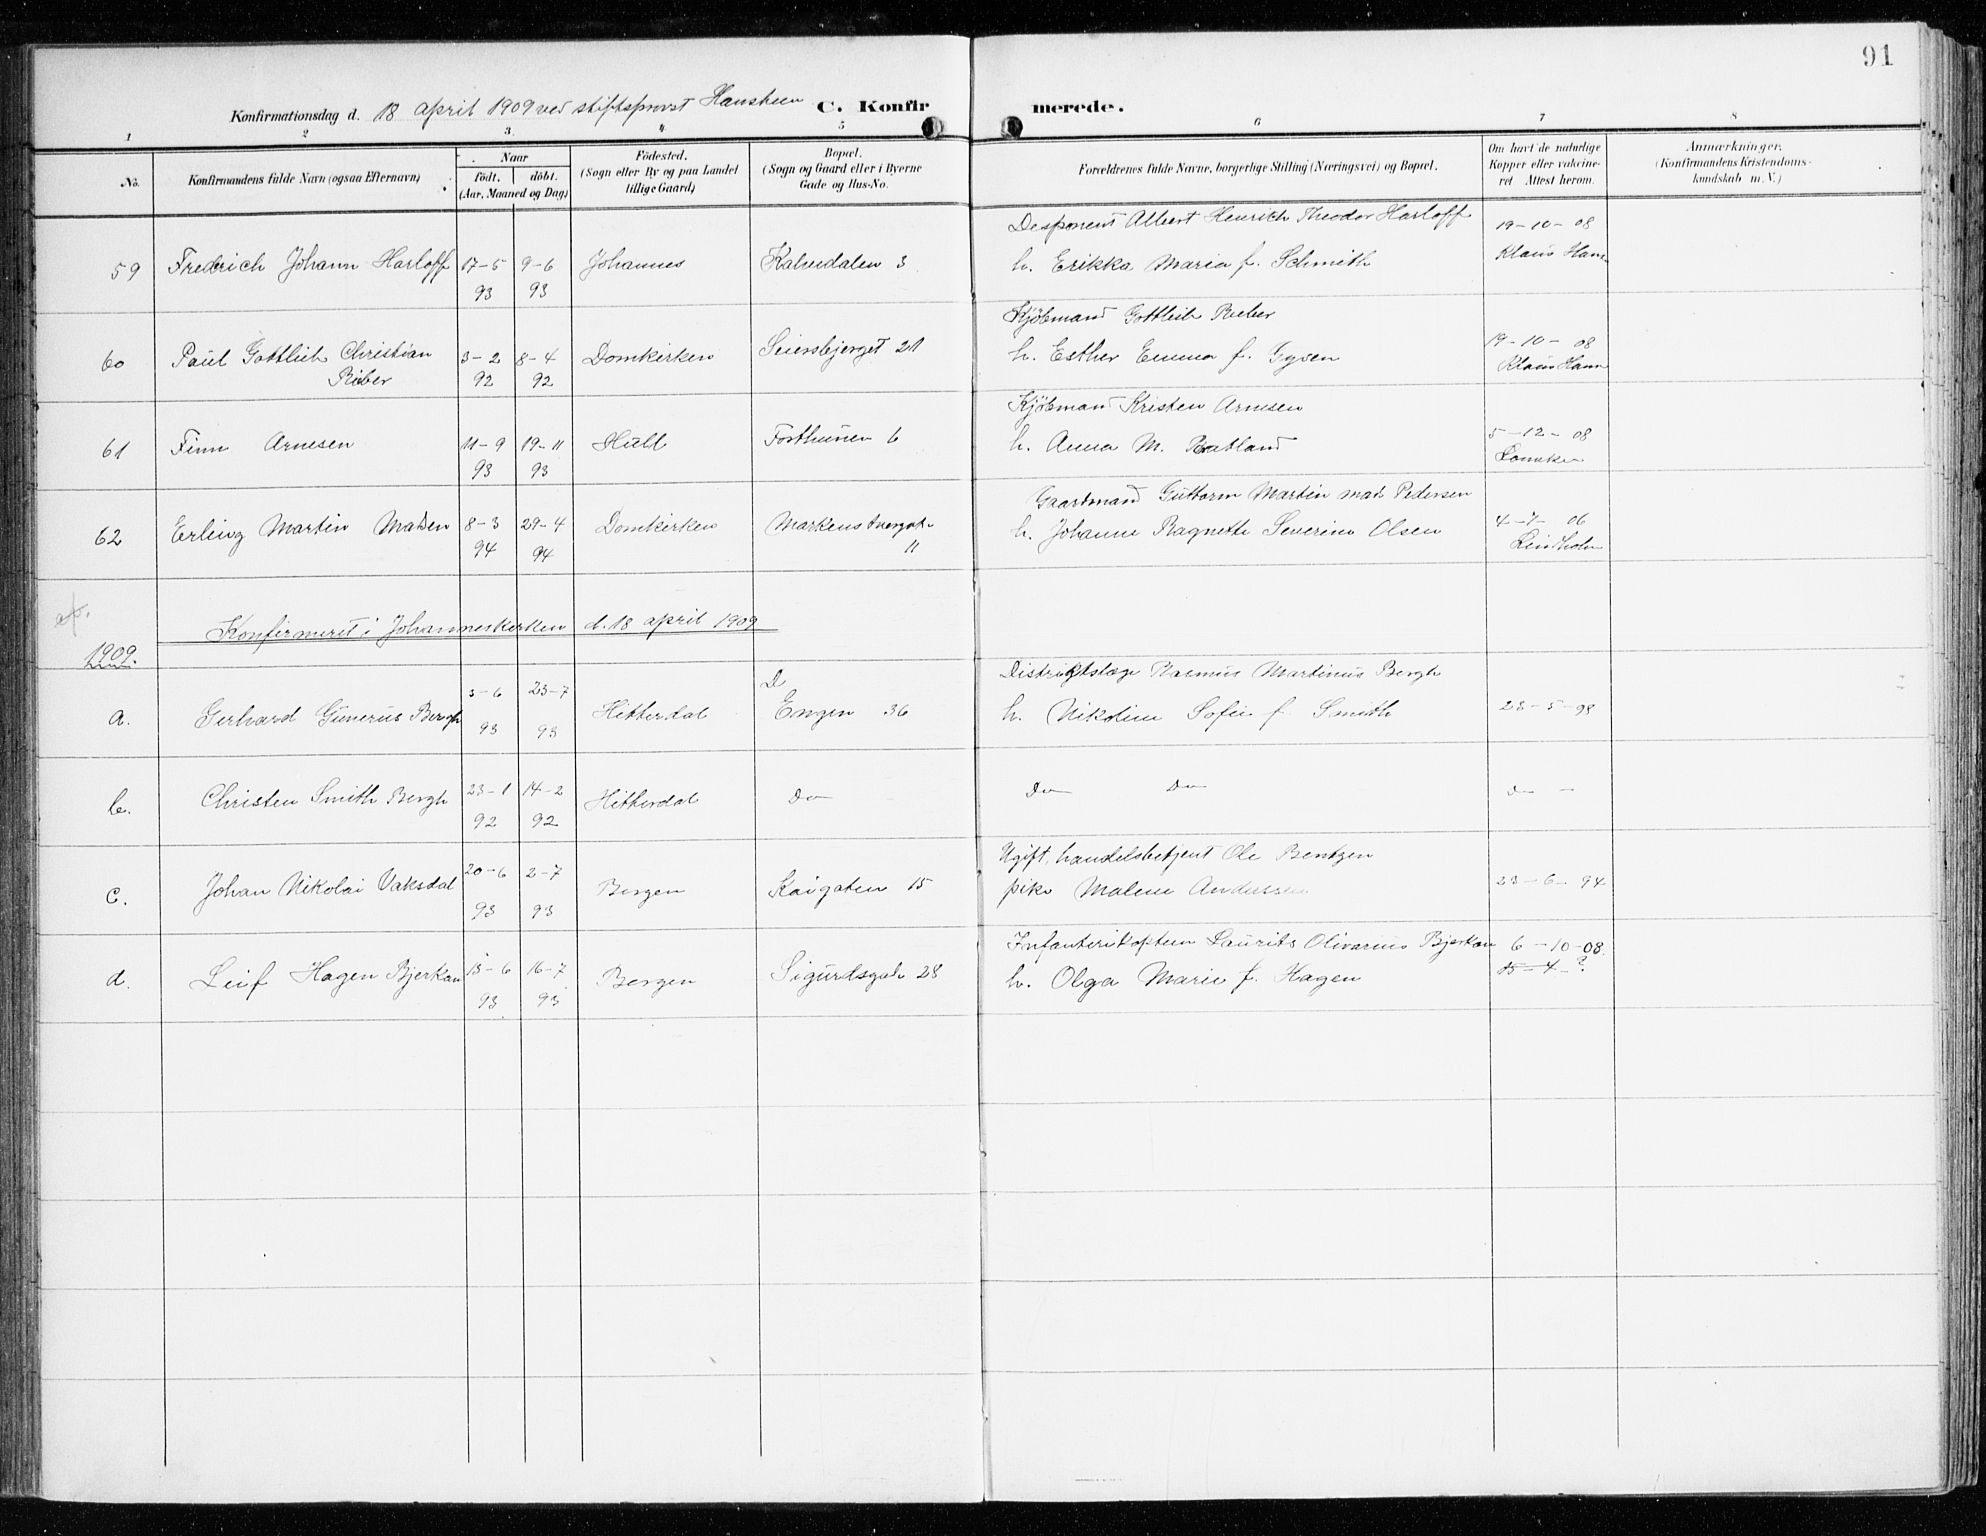 91
Konfirmationsdag d. 18 april 1909 ved stiftsprovst Hansteen C. Konfir merede.
1 2 3. 4 5 6 7 8
No. Konfirmandens fulde Navn (ogsaa Efternavn) Naar födt. döbt. (Aar, Maaned og Dag) Födested. (Sogn eller By og paa Landet tillige Gaard) Bopæl. (Sogn og Gaard eller i Byerne Gade og Hus-No. Forældrenes fulde Navne, borgerlige Stilling (Næringsvei) og Bopæl. Om havt de naturlige Kopper eller vakcineret. Attest herom. Anmærkninger. (Konfirmandens Kristendomskundskab m. V.)
Desponent Albert Henrich Theodor Harloff 19-10-08
59 Fredrich Johann Harloff 17-5 9-6 Johannes Kalvedalen 3 h. Erikka Maria f. Schmith Klaus Han
93 93
Kjöbmand Gottlieb Rieber
60 Paul Gottlieb Christian 3-2 8-4 Domkirken Seiersbjerget 21 h. Esther Emma f. Gysen 19-10-08
Rieber 92 92 Klaus Hann
Kjöbmand Kristen Arnesen
61 Finn Arnesen 11-9 19-11 Hull Fosthunen 6 h. Anna M. Ratland 5-12-08
93 93
Gaardmand Guttorm Martin Mads Pedersen
62 Erling Martin Madsen 8-3 29-4 Domkirken Markens tvergate h. Johanne Ragnette Severine Olsen 4-7-06
94 94 11 Lindholm
Konfirmeret i Johanneskirken d. 18 april 1909
1909.
3-6 23-7 D Distriktslæge Rasmus Martinus Bergh
a. Gerhard Gunerus Bergh Hitterdal Engen 36 h. Nikoline Sofie f. Smith 28-5-98
93 93
b. Christen Smith Bergh 23-1 14-2 Hitterdal Do Do Do Do -
92 92
20-6 2-7 Ugift, handelsbetjent Ole Bentzen
c. Johan Nikolai Vaksdal Bergen Kaigaten 15 pike Malene Anderssen 23-6-94
93 93
Infanterikaptein Laurits Olivarius Bjerkan 6-10-08
d. Leif Hagen Bjerkan 15-6 16-7 Bergen Sigurdsgate 28 h. Olga Marie f. Hagen 15-4-?
93 93